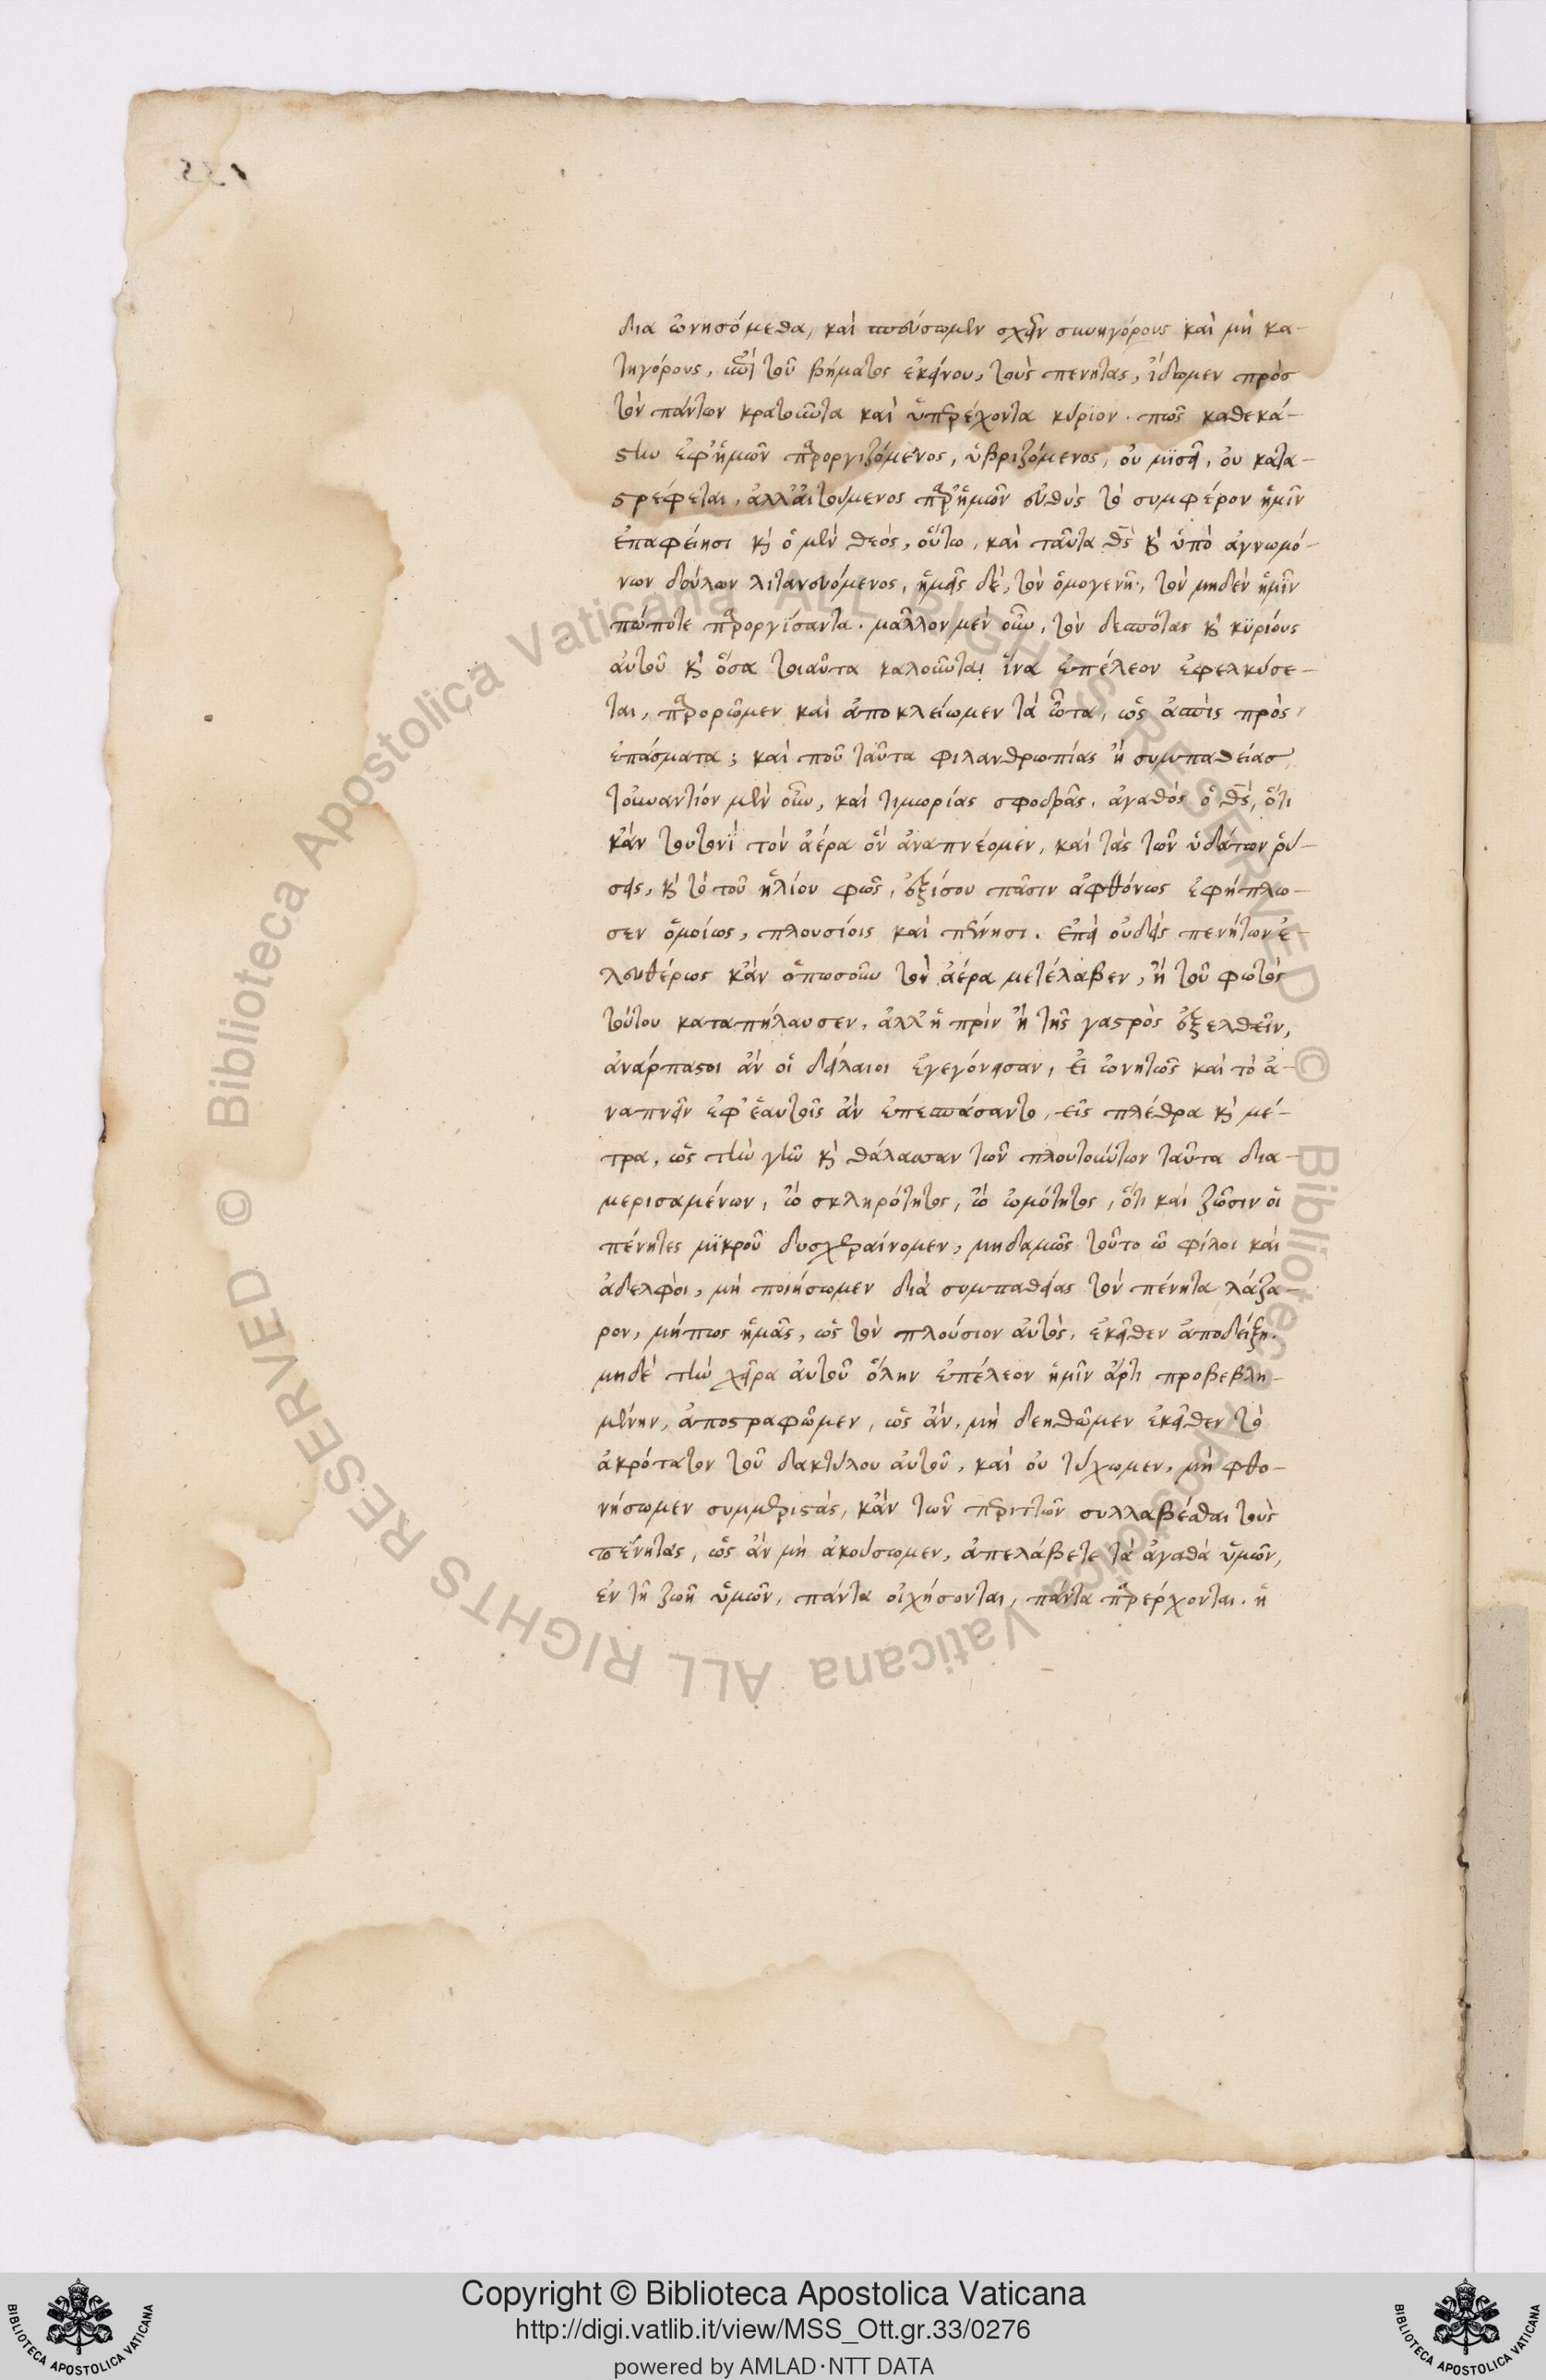 δια ὠνησόμεθα, καὶ σπεύσωμεν σχεῖν συνηγόρους καὶ μὴ κα-
τηγόρους, ἐπὶ τοῦ βήματος ἐκείνου, τοὺς πενητας, ἴδωμεν πρὸς
τὸν πάντων κρατοῦντα καὶ ὑπερέχοντα κύριον. πῶς καθεκά-
στην ἐφ' ἡμῶν παροργιζόμενος, ὑβριζόμενος, οὐ μισεῖ, οὐ κατα-
στρέφεται, ἀλλ' αἰτούμενος παρ' ἡμῶν εὐθὺς τὸ συμφέρον ἡμῖν
ἐπαφείησι κὶ ὁ μὲν θεὸς, οὕτω, καὶ ταῦτα θς κὶ ὑπὸ ἀγνωμό-
νων δούλων λιτανευόμενος, ἡμεῖς δὲ, τὸν ὁμογενῆ, τὸν μηδὲν ἡμῖν
πώποτε παροργίσαντα. μᾶλλον μὲν οὖν, τὸν δεσπότας κὶ κυρίους
αὐτοῦ κὶ ὅσα τοιαῦτα καλοῦνται ἵνα ἐπέλεον ἐφελκύσε-
ται, παρορῶμεν καὶ ἀποκλείωμεν τὰ ὦτα, ὡς ἀσπὶς πρὸς
ἐπάσματα; καὶ ποῦ ταῦτα φιλανθρωπίας ἢ συμπαθείας
τοὐναντίον μὲν οὖν, καὶ τιμωρίας σφοδρᾶς. ἀγαθὸς ὁ θς, ὅτι
κἂν τουτονῒ τὸν ἀέρα ὃν ἀναπνέομεν, καὶ τὰς τῶν ὑδάτων ῥύ-
σεις, κὶ τὸ τοῦ ἡλίου φῶς, ἐξίσου πᾶσιν ἀφθόνως ἐφήπλω-
σεν ὁμοίως, πλουσίοις καὶ πένησι. ἐπεὶ οὐδεὶς πενήτων ἐ-
λευθέρως κἂν ὁπωσοῦν τὸν ἀέρα μετέλαβεν, ἢ τοῦ φωτὸς
τούτου καταπήλαυσεν, ἀλλ' ἢ πρὶν ἢ τῆς γαστρὸς ἐξελθεῖν,
ἀνάρπαστοι ἂν οἱ δείλαιοι ἐγεγόνησαν, εἰ ὠνητῶς καὶ τὸ ἀ-
ναπνεῖν ἐφ' ἑαυτοῖς ἂν ἐπεσπάσαντο, εἰς πλέθρα κὶ μέ-
τρα, ὡς τὴν γῆν κὶ θάλασσαν τῶν πλουτούντων ταῦτα δια-
μερισαμένων, ὢ σκληρότητος, ὢ ὠμότητος, ὅτι καὶ ζῶσιν οἱ
πένητες μϊκροῦ δυσχεραίνομεν, μηδαμῶς τοῦτο ὦ φίλοι καὶ
ἀδελφοὶ, μὴ ποιήσωμεν διὰ συμπαθείας τὸν πένητα λάζα-
ρον, μήπως ἡμᾶς, ὡς τὸν πλούσιον αὐτὸς, ἐκεῖθεν ἀποδείξῃ.
μηδὲ τὴν χεῖρα αὐτοῦ ὅλην ἐπέλεον ἡμῖν ἄρτι προβεβλη-
μένην, ἀποστραφῶμεν, ὡς ἂν, μὴ δεηθῶμεν ἐκεῖθεν τὸ
ἀκρότατον τοῦ δακτύλου αὐτοῦ, καὶ οὐ τύχωμεν, μὴ φθο-
νήσωμεν συμμεριστὰς, κἂν τῶν περιττῶν συλλαβέσθαι τοὺς
πένητας, ὡς ἂν μὴ ἀκούσωμεν, ἀπελάβετε τὰ ἀγαθὰ ὑμῶν,
ἐν τῇ ζωῇ ὑμῶν, πάντα οἰχήσονται, πάντα παρέρχονται. ἡ
Copyright © Biblioteca Apostolica Vaticana
http://digi.vatlib.it/view/MSS_Ott.gr.33/0276
powered by AMLAD·NTT DATA